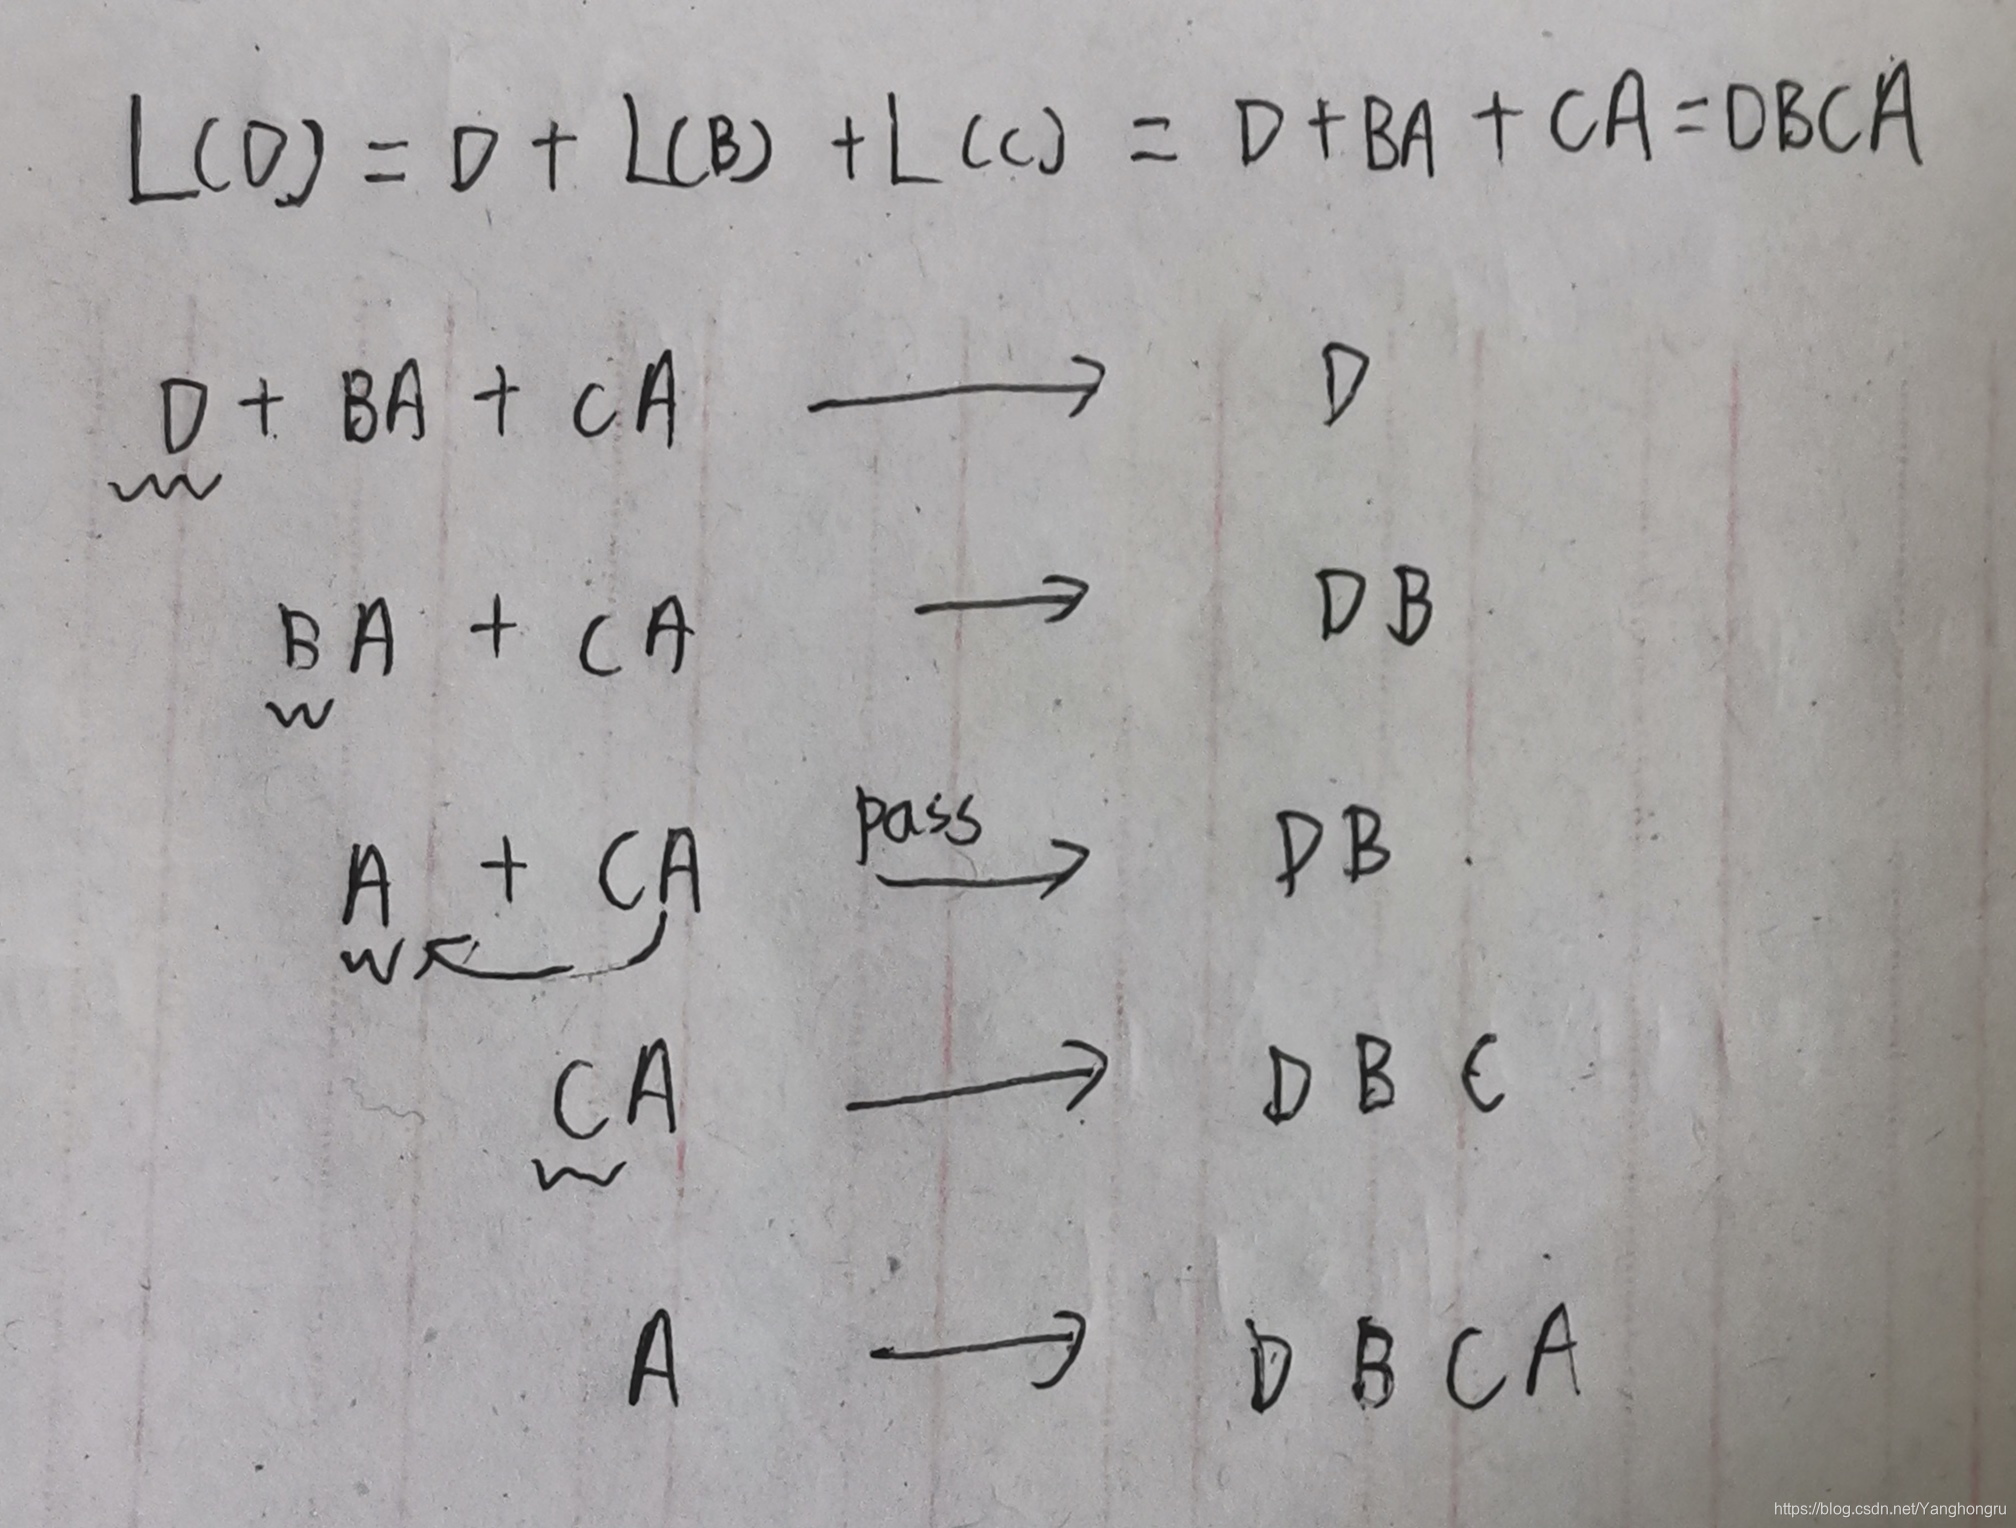 L(D) = D + L(B) + L(C) = D + BA + CA = DBCA
D + BA + CA → D
BA + CA → DB
pass
A + CA → DB
CA → D B C
A → D B C A
https://blog.csdn.net/Yanghongru